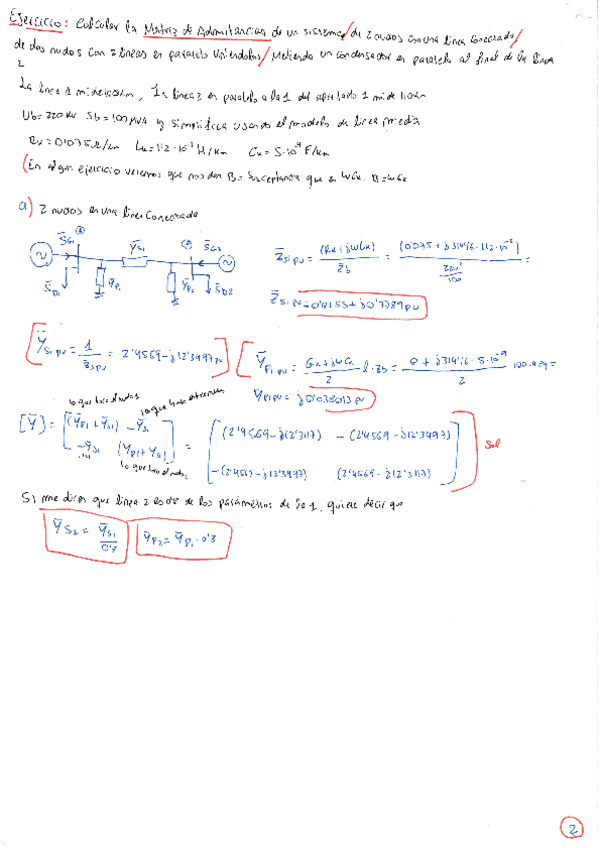 Ejercicio: Calcular la Matriz de Admitancias de un sistema / de 2 nudos con una línea conectada /
de dos nudos con 2 líneas en paralelo uniéndolos / Metiendo un condensador en paralelo al final de la línea
2
La línea 1 mide 100km, la línea 2 en paralelo a la 1 del apartado 1 mide 110km
Ub = 220 kV Sb = 100 MVA y simplifica usando el modelo de línea media
Rk = 0'075 Ω/km Lk = 1'2·10⁻³ H/km Ck = 5·10⁻⁹ F/km
(En algún ejercicio veremos que nos dan B = Susceptancia que es ωCk. B = ωCk
a) 2 nudos en una línea conectada
S̄G1 ① ȲS1 ② S̄G2
S̄D1 ȲP1 ȲP1 S̄D2
Z̄S1pu = (Rk + jωLk) / Z̄b = (0'075 + j314'16·1'2·10⁻³) / (220²/100) =
Z̄S1pu = 0'0155 + j0'7789 pu
ȲS1pu = 1 / Z̄S1pu = 2'4569 - j12'3497 pu
ȲP1pu = (Gk + jωCk) / 2 · l · Zb = (0 + j314'16·5·10⁻⁹) / 2
ȲP1pu = j0'038013 pu
lo que toca al nudo
lo que hay entre nudos
[Ȳ] = [(ȲP1 + ȲS1) -ȲS1 = [(2'4569 - j12'3117) -(2'4569 - j12'3497)
-ȲS1 (ȲP1 + ȲS1)] -(2'4569 - j12'3497) (2'4569 - j12'3117)] Sol
lo que toca al nudo
Si me dicen que línea 2 es de los parámetros de la 1, quiere decir que
ȲS2 = ȲS1 ȲP2 = ȲP1 · 0'8
2